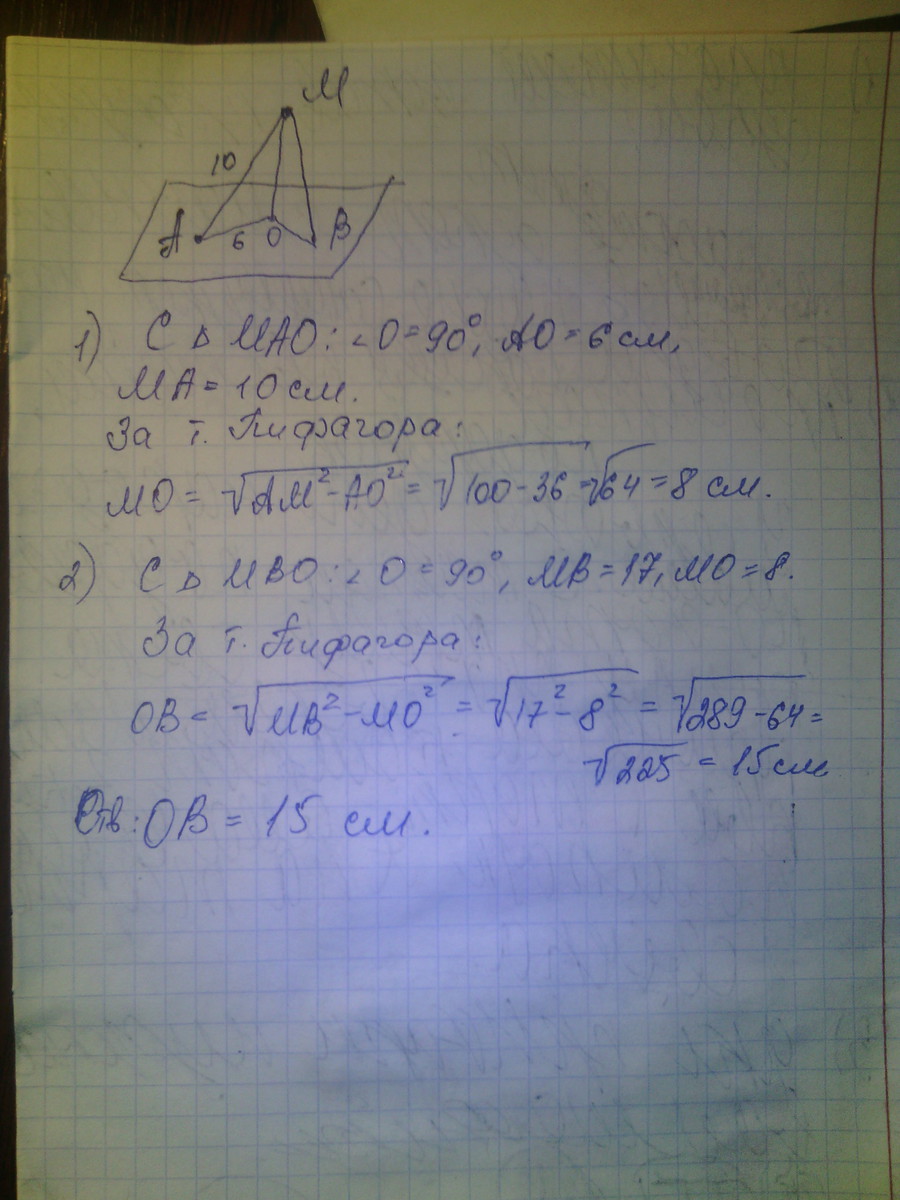 M
10
A 6 O B
1) С △ MAO: ∠O = 90°, AO = 6 см,
MA = 10 см.
За т. Пифагора:
MO = √AM² - AO² = √100 - 36 = √64 = 8 см.
2) С △ MBO: ∠O = 90°, MB = 17, MO = 8.
За т. Пифагора:
OB = √MB² - MO² = √17² - 8² = √289 - 64 =
√225 = 15 см
Отв: OB = 15 см.